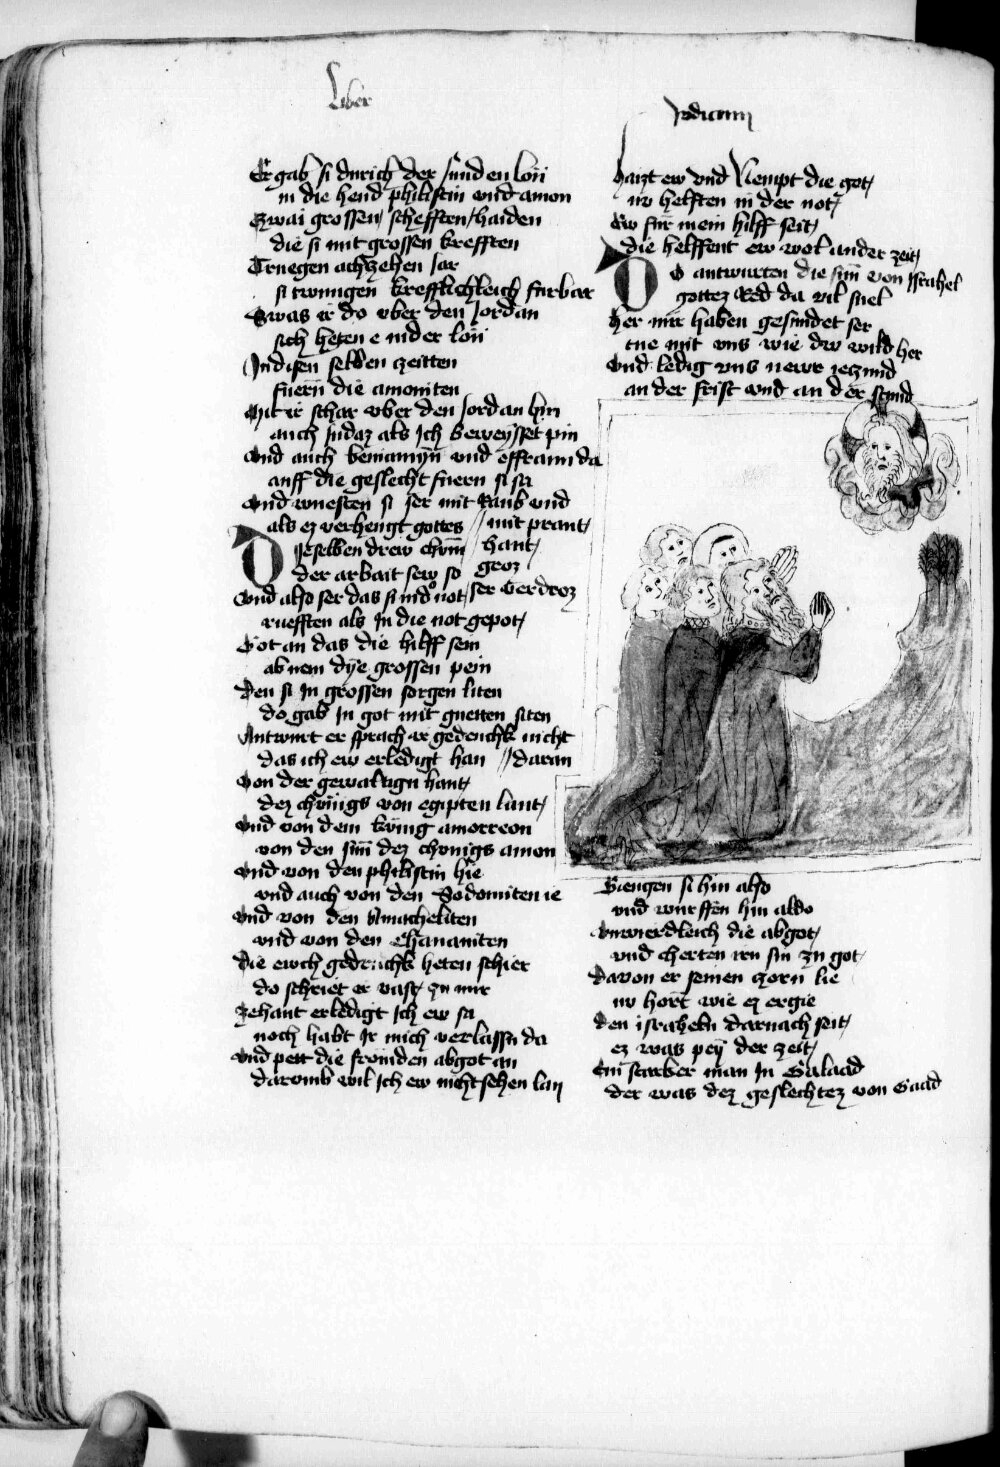 Liber
Judicum
Er gab si durich der sunden lon
in die hend philistin vnd amon
Zwai grossen schefften haiden
die si mit grossen krefften
Truegen achzehen Jar
si twungen krefftichleich furbar
Swas ir do vber den Jordan
sich heten e nider lon
In disen selben zeitten
fuern die amoniten
Mit ir schar vber den Jordan hin
auch Judaz als Ich beweysset pin
vnd auch beniamyn vnd effraim da
auff die geslecht fuern si sa
vnd wuesten si ser mit Raub vnd
als ez verhengt gottes // mit prant
Dieselben drew chom // hant
der arbait sew so groz
vnd also ser das si in der not ser verdroz
ruefften als In die not gepot
Got an das die hilff sein
ab nem dye grossen pein
den si In grossen sorgen liten
do gab In got mit gueten siten
Antwurt er sprach ir gedenchk nicht
das ich ew erledigt han // daran
von der gewaltign hant
dez chunigs von egipten lant
vnd von dem kung amorreon
von den sun dez chonigs amon
vnd von den philistin hie
vnd auch von den Sodomiten ie
vnd von den amacheliten
vnd von den Chananiten
die ewch gedruchk heten schier
do schriet er vast zu mir
zehant erledigt Ich ew sa
noch habt Ir mich verlassn da
vnd pett die fromden abgot an
darumb wil Ich ew nicht sehen lan
haizt ew vnd Nempt die got
iw helften in der not
Ew fur mein hilff seit
die helffent ew wol ander zeit
Do antwurten die sun von Israhel
gottez Red da vil snel
her wir haben gesundet ser
tue mit vns wie dw wild her
vnd ledig vns newr iezund
an der frist vnd an der stund
Giengen si hin also
vnd wurffen hin aldo
vnwierdleich die abgot
vnd cherten irn sin zu got
davon er seinen zorn lie
nv hort wie ez ergie
den israheln darnach seit
ez was pey der zeit
Ein starker man In Galaad
der was dez geslechtez von Gaad